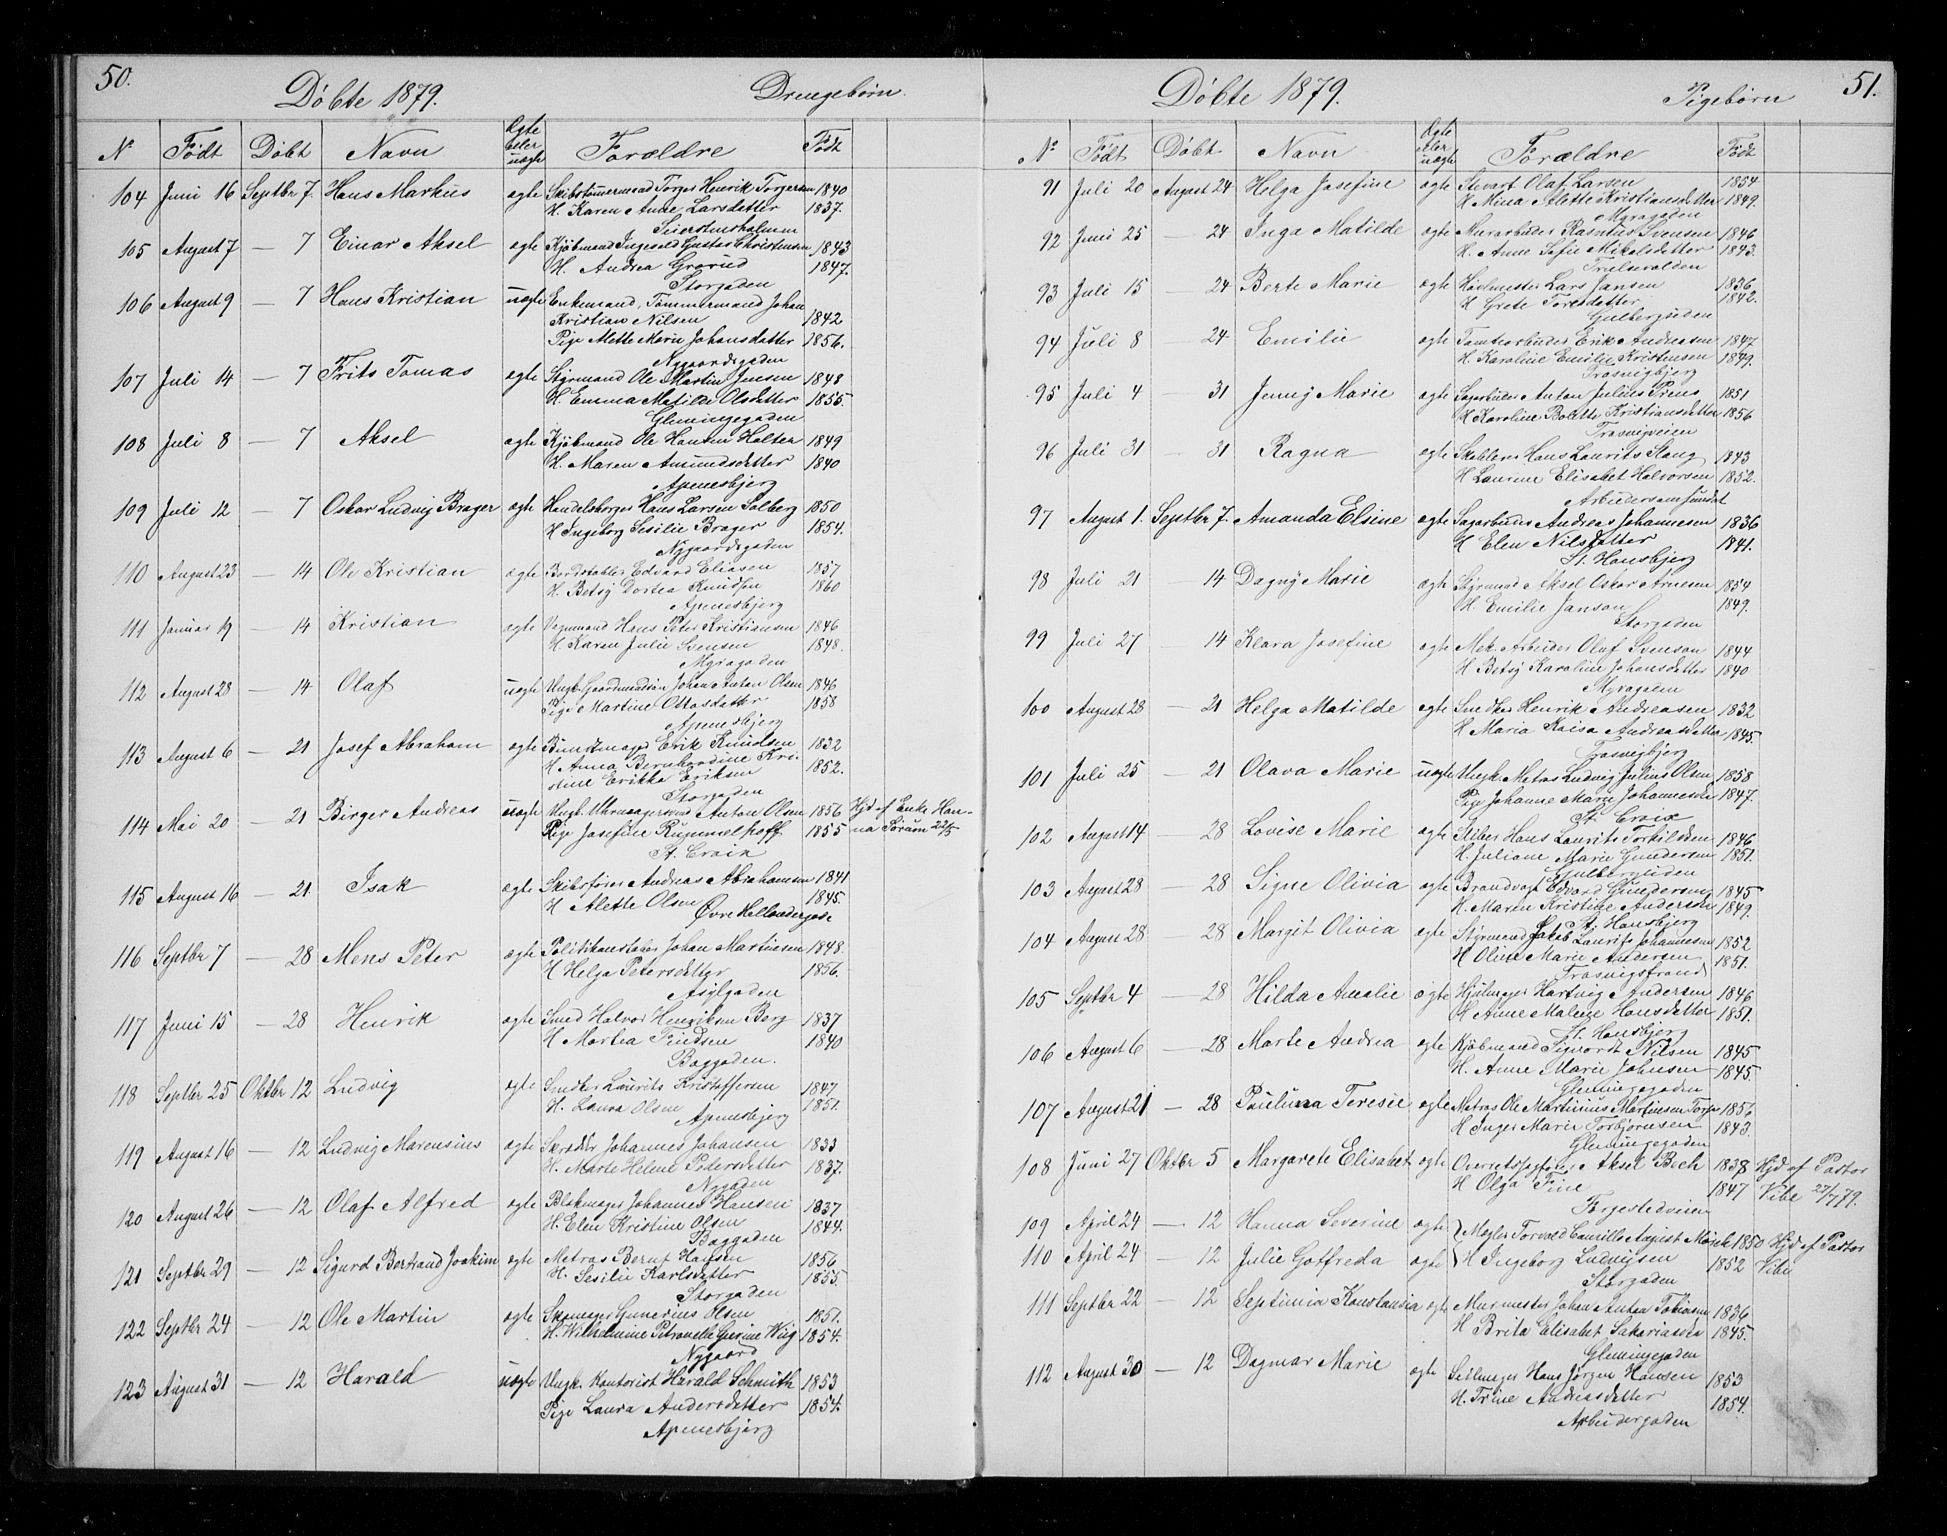 50.
Döbte 1879. Drengebörn.
N Födt Döbt Navn Ægte eller uægte Forældre Födt
104 Juni 16 Septbr 7. Hans Markus ægte Skibstömermand Torger Henrik Torgersen 1840
H. Karen Anne Larsdatter 1837.
105 August 7 — 7 Einar Aksel ægte Kjöbmand Ingevald Gustav Christensen 1843
H. Andrea Grorud 1847.
Storgaden
106 August 9 — 7 Hans Kristian uægte Enkemand, Tömmermand Johan
Kristian Nilsen 1842
Pige Alette Marie Johansdatter 1856.
Nygaardsgaden
107 Juli 14 — 7 Frits Tomas ægte Styrmand Ole Martin Jensen 1848
H. Emma Matilde Olsdatter 1855.
Glemingegaden
108 Juli 8 — 7 Aksel ægte Kjöbmand Ole Hansen Holter 1849
H. Maren Amundsdatter 1840
Apenesbjerg
109 Juli 12 — 7 Oskar Ludvig Brager ægte Handelsborger Hans Larsen Solberg 1850
H Ingeborg Sesilie Brager 1854.
Nygaardsgaden
110 August 23 — 14 Ole Kristian ægte Bordstabler Edvard Eliasen 1857
H. Betsy Dortea Knudsen 1860
Apenesbjerg
111 Januar 19 — 14 Kristian ægte Vognmand Hans Peter Kristiansen 1846
H Karen Julie Svensen 1848.
Myragaden
112 August 28 — 14 Olaf uægte Ungk. Gaardmandssön Johan Anton Olsen 1846
Pige Martine Ottosdatter 1858
Apenesbjerg
113 August 6 — 21 Josef Abraham ægte Buntmager Erik Knudsen 1832
H. Anna Bernhardine Kri-
stine Erikka Eriksen 1852.
Storgaden
114 Mai 20 — 21 Birger Andreas uægte Ungk. Uhrmagersvend Anton Olsen 1856 Hjd af Enke Han-
Pige Josefine Rummelhoff 1855 na Sörum 22/5
St. Croix
115 August 16 — 21 Isak ægte Skibsförer Andreas Abrahamsen 1841
H Alette Olsen 1845.
Övre Hollendergade
116 Septbr 7 — 28 Mens Peter ægte Politikonstabel Johan Martinsen 1848.
H Helga Petersdatter 1856.
Asylgaden
117 Juni 15 — 28 Henrik ægte Smed Halvor Henriksen Berg 1837
H Martea Trudsen 1840
Baggaden.
118 Septbr 25 Oktbr 12 Ludvig ægte Snedker Laurits Kristoffersen 1847
H. Laura Olsen 1851.
Apenesbjerg
119 August 16 — 12 Ludvig Marensius ægte Skrædder Johannes Johansen 1833
H. Marte Helene Pedersdatter 1837.
Nygaden
120 August 26 — 12 Olaf Alfred ægte Blokmager Johannes Hansen 1837
H. Elen Kristine Olsen 1844.
Baggaden
121 Septbr 29 — 12 Sigurd Bertrand Joakim ægte Matros Bernt Hansen 1856
H. Sesilie Karlsdatter 1855.
Storgaden
122 Septbr 24 — 12 Ole Martin ægte Skomager Gunerius Olsen 1851.
H. Wilhelmine Petronelle Gurine Wiig 1854.
Nygaard
123 August 31 — 12 Harald uægte Ungk. Kontorist Harald Schmith 1853
Pige Laura Andersdatter 1854.
Apenesbjerg
51.
Döbte 1879. Pigebörn
No Födt Döbt Navn Ægte eller uægte Forældre Födt
91 Juli 20 August 24 Helga Josefine ægte Stevart Olaf Larsen 1854
H Mina Alette Kristiansdatter 1849.
Myragaden
92 Juni 25 — 24 Inga Matilde ægte Murarbeider Rasmus Svensen 1846
H. Anne Sofie Mikelsdatter 1843.
93 Juli 15 — 24 Berte Marie ægte Lars Jansen 1836
H Grete Toresdatter 1842.
94 Juli 8 — 24 Emilie ægte Tomtearbeider Erik Andreassen 1847
H. Karoline Emilie Kristensen 1849.
Trosvigbjerg
95 Juli 4 — 31 Jenny Marie ægte Anton Julius Prens 1851
H Karoline Bolette Kristiansdatter 1856
Trosvigveien
96 Juli 31 — 31 Ragna ægte Hans Laurits Stang 1843
H Laurine Elisabet Halvorsen 1852.
Arbeidersamfundet
97 August 1. Septbr 7. Amanda Elsine ægte Sagarbeider Andreas Johannesen 1836
H Elen Nilsdatter 1841.
St. Hansbjerg
98 Juli 21 14 Dagny Marie ægte Styrmand Aksel Oskar Arnesen 1854
H. Emilie Janson 1849.
Storgaden
99 Juli 27 — 14 Klara Josefine ægte Mek. Arbeider Olaf Svenson 1844
H Betsy Karoline Johansdatter 1840
Myragaden
100 August 28 — 21 Helga Matilde ægte Snedker Henrik Andreasen 1832
H Maria Kaisa Andreasdatter 1845.
Trosvigbjerg
101 Juli 25 — 21 Olava Marie uægte Ungk. Matros Ludvig Julius Olsen 1858
Pige Johanne Marie Johannesen 1847.
St. Croix
102 August 14 — 28 Lovise Marie ægte Hans Laurits Torkildsen 1846
H. Juliane Marie Gundersen 1851.
103 August 28 — 28 Signe Olivia ægte Brandvagt Edvard Gundersen 1845
H. Maren Kristine Andersen 1849.
St. Hansbjerg
104 August 28 — 28 Margit Olivia ægte Styrmand Jakob Laurits Johannesen 1852
H Oline Marie Andersen 1851.
Trosvigstrand
105 Septbr 4 — 28 Hilda Amalie ægte Hjulmager Hartvig Andersen 1846
H Anne Malene Hansdatter 1851.
St. Hansbjerg
106 August 6 — 28 Marte Andrea ægte Kjöbmand Sigvardt Nilsen 1845
H. Anne Marie Johnsen 1845.
Glemingegaden
107 August 21 — 28 Paulina Teresie ægte Matros Ole Martinius Martinsen Torp 1856
H Inger Marie Torbjörnsen 1843.
Glemingegaden
108 Juni 27 Oktbr 5 Margarete Elisabet ægte Overretssagförer Aksel Bech 1838 Hjd af Pastor
H Olga Fine 1847 Vibe 27/7 79.
Færgestedveien
109 April 24 — 12 Hanna Severine ægte Megler Torvald Camillo August Mörch 1850 Hjd af Pastor
110 April 24 — 12 Julie Gotfreda ægte H Ingeborg Ludvigsen 1852 Vibe
Storgaden
111 Septbr 22 — 12 Septimia Konstansia ægte Murmester Johan Anton Tobiasen 1836
H Brita Elisabet Sakariasen 1845.
Glemingegaden
112 August 30 — 12 Dagmar Marie ægte Seilmager Hans Jörgen Hansen 1853
H. Trine Andreasdatter 1854.
Arbeidergaden